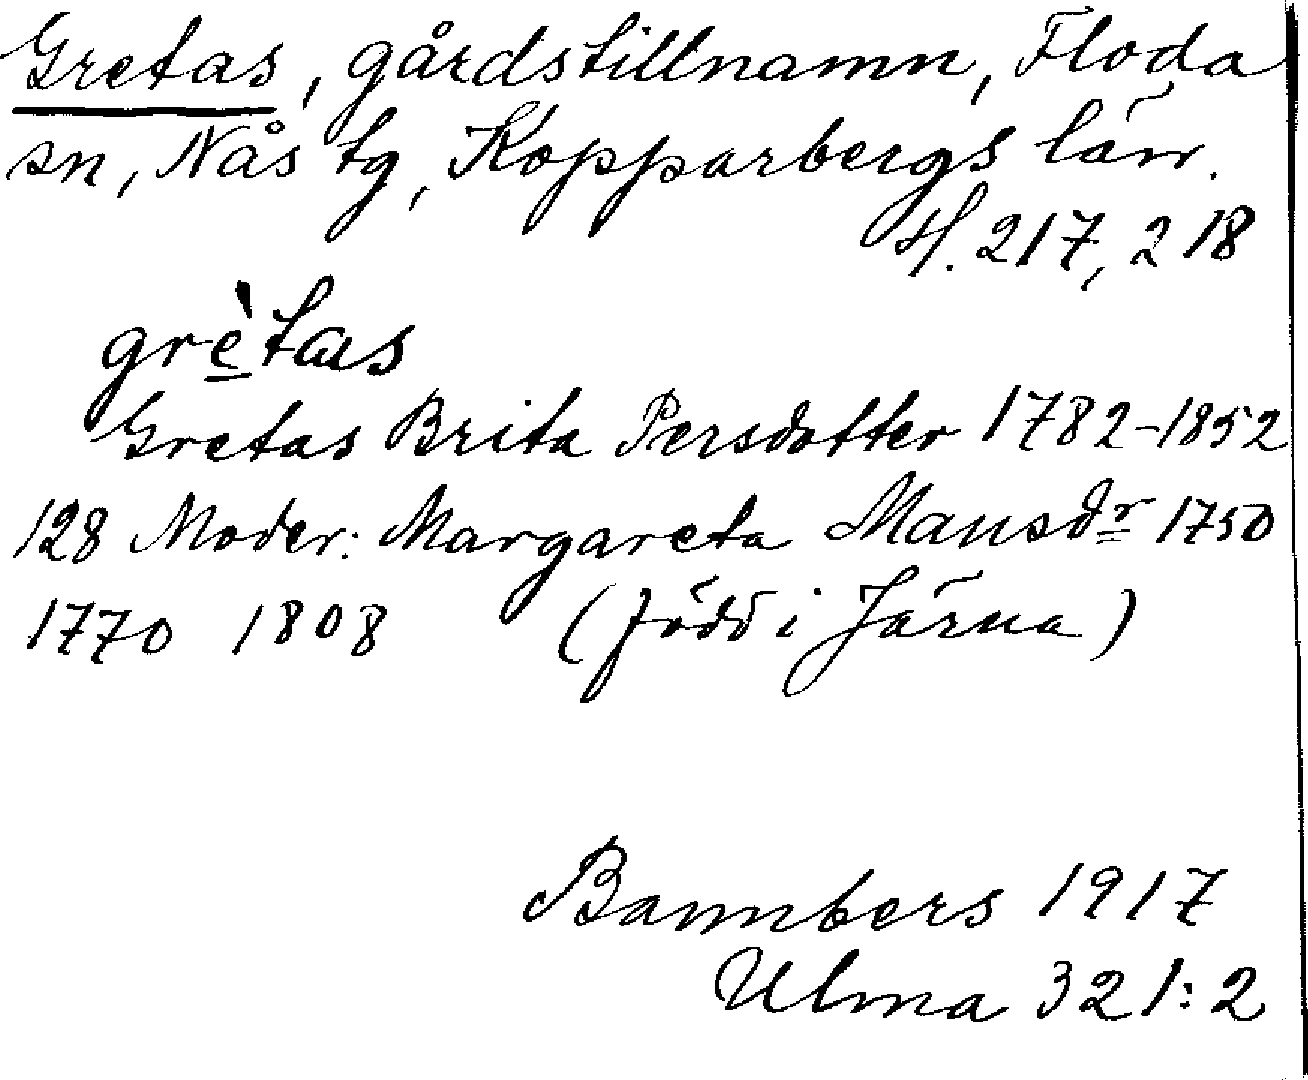 Gretas, gårdstillnamn, Floda
sn, Nås tg, Kopparbergs län.
H. 217, 218
grè̱tas
Gretas Brita Persdotter 1782-1852
128 Moder: Margareta Mansdr 1750
1770 1808 (född i Järna)
Bannbers 1917
Ulma 321:2